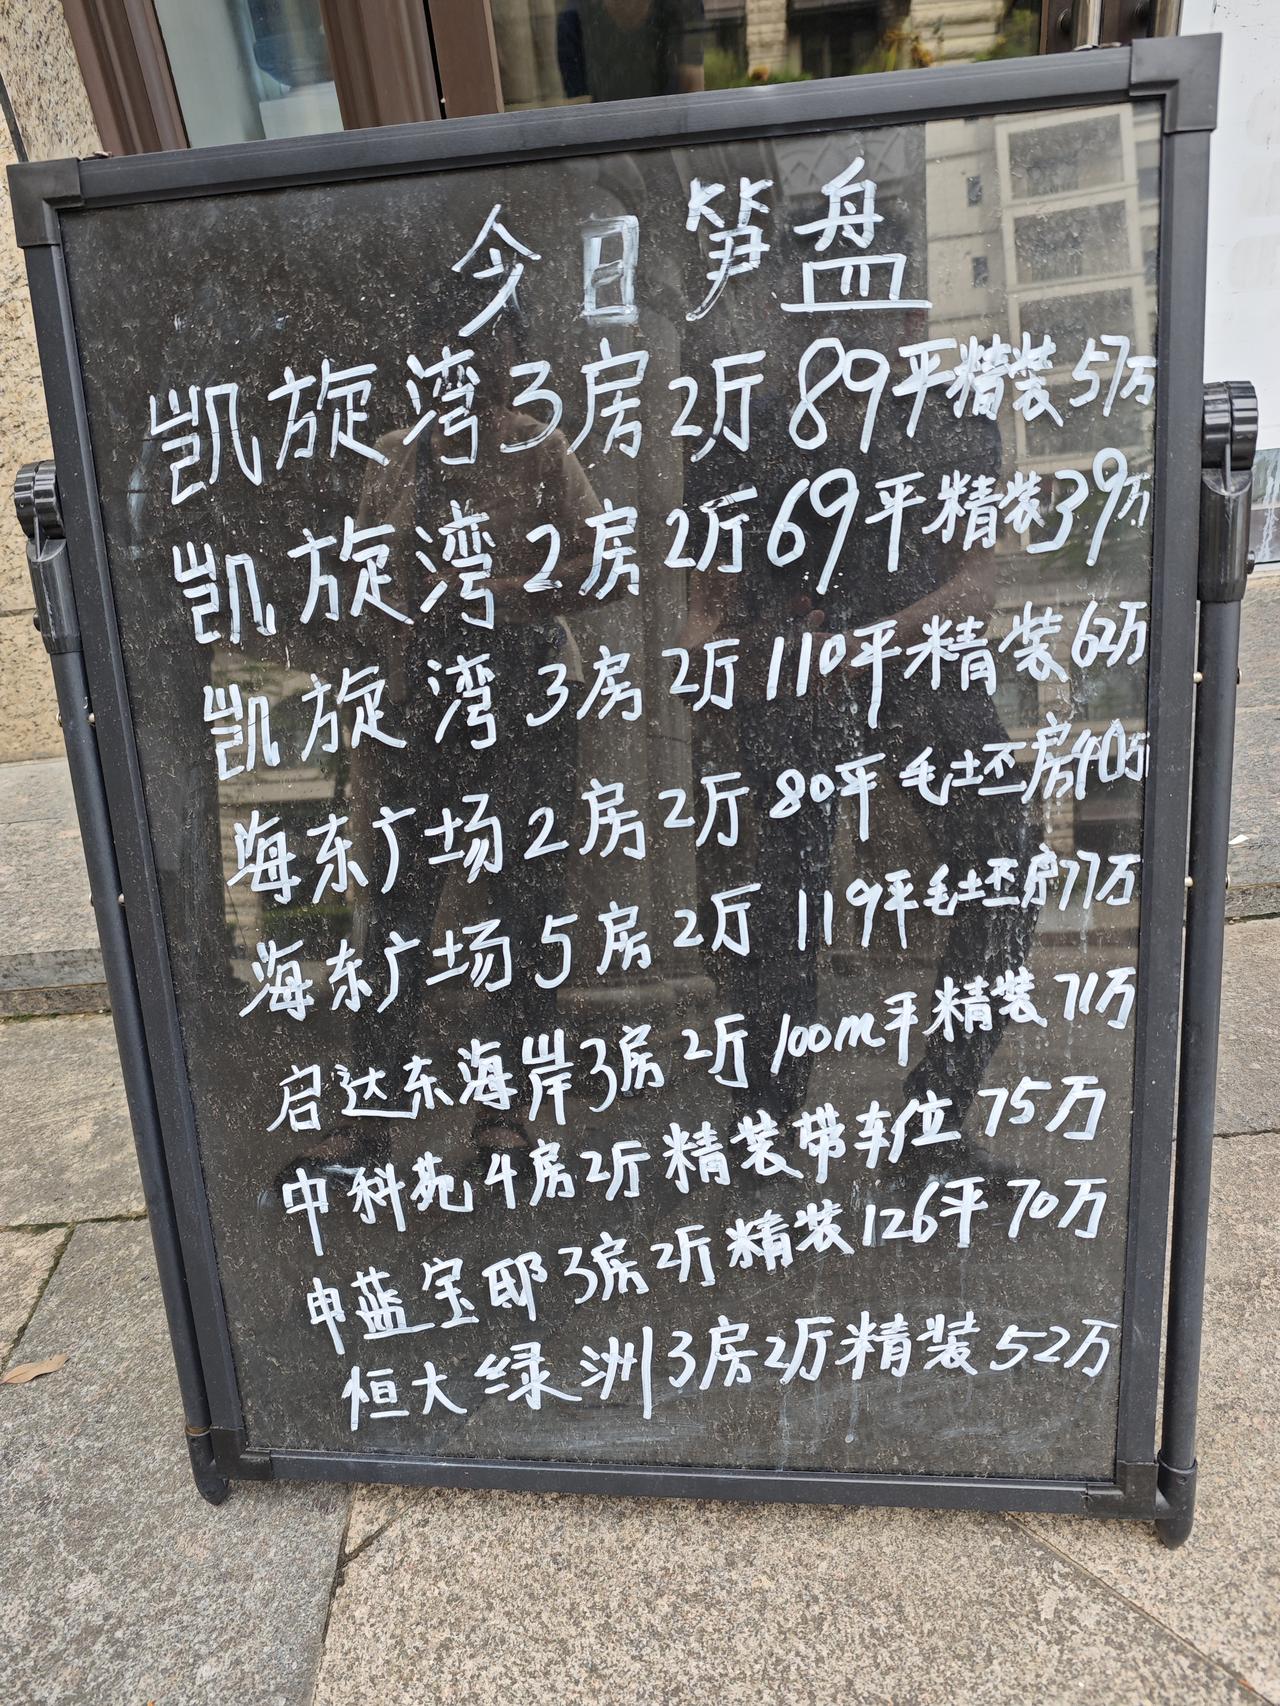 今日笋盘
凯旋湾3房2厅89平精装57万
凯旋湾2房2厅69平精装39万
凯旋湾3房2厅110平精装62万
海东广场2房2厅80平毛土丕房40万
海东广场5房2厅119平毛土丕房77万
启达东海岸3房2厅100m平精装71万
中科苑4房2厅精装带车位75万
申蓝宝邸3房2厅精装126平70万
恒大绿洲3房2厅精装52万